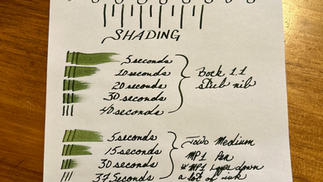 SHADING
5 seconds
10 seconds
20 seconds
30 seconds
40 seconds
Bock 1.1
stub nib
5 seconds
15 seconds
30 seconds
37 seconds
Medium
MP1 Pen
MP1 Lays down
a lot of ink